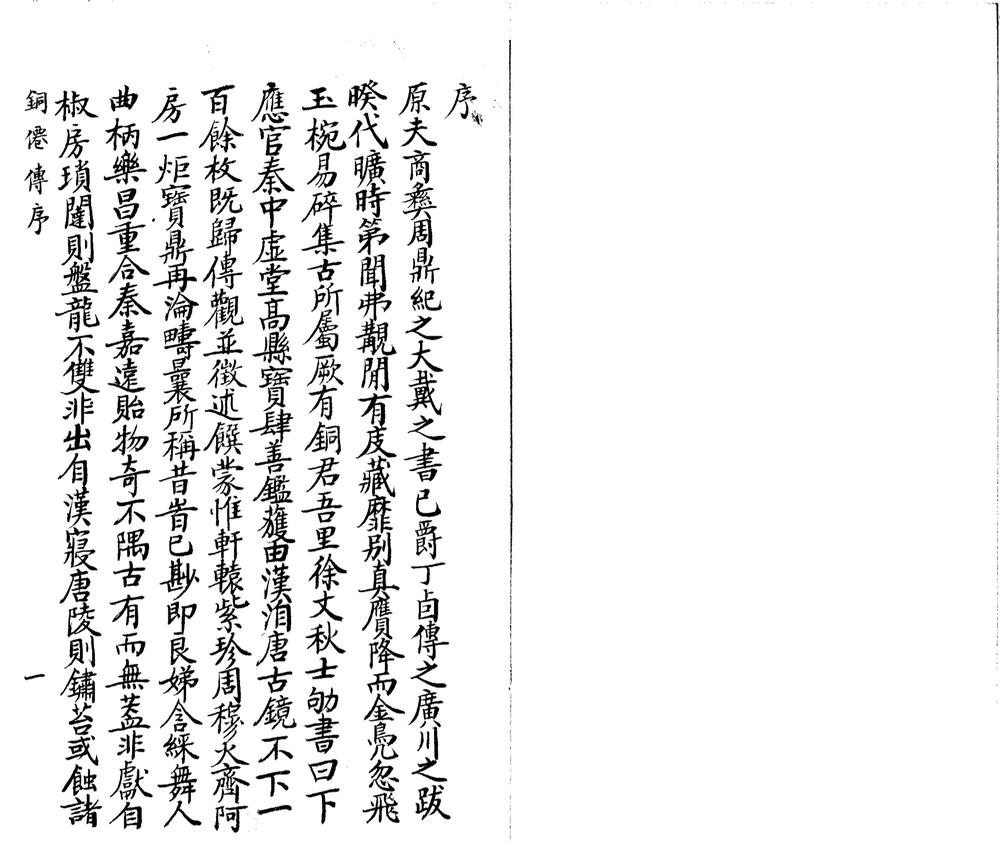 序
原夫商彝周鼎紀之大戴之書已爵丁卣傳之廣川之跋
暌代曠時第聞弗覩閒有庋藏靡别真贋降而金鳧忽飛
玉椀易碎集古所屬厥有銅君吾里徐丈秋士劬書日下
應官秦中虛堂高縣寶肆善鑑蒦由漢洎唐古鏡不下一
百餘枚既歸傳觀並徵述饌蒙惟軒轅紫珍周穆火齊阿
房一炬寶鼎再淪疇曩所稱昔旹已尠即良娣含綵舞人
曲柄樂昌重合秦嘉遠貽物奇不隅古有而無葢非獻自
椒房瑣闥則盤龍不雙非出自漢寢唐陵則鏽苔或蝕諸
銅僊傳序
一